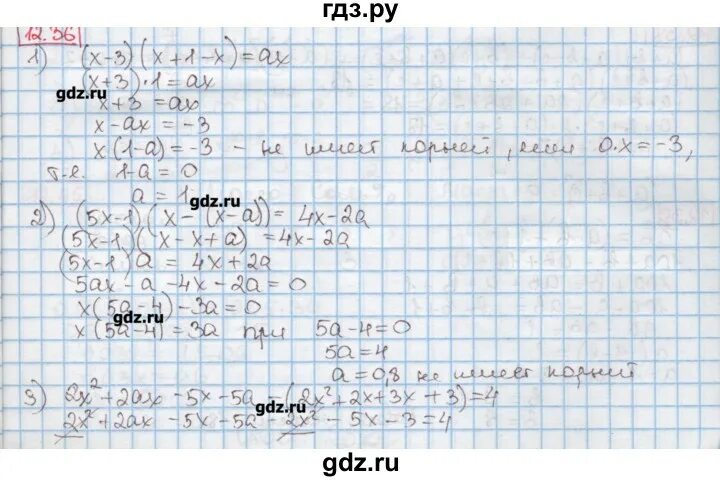 гдз.ру
12.36
1) (x-3)(x+1-x)=ax
(x+3)·1=ax
gdz.ru
x+3=ax
x-ax=-3
x(1-a)=-3 - не имеет корней, если 0·x=-3,
т.е. 1-a=0
a=1
gdz.ru
2) (5x-1)(x-(x-a))=4x-2a
(5x-1)(x-x+a)=4x-2a
(5x-1)a=4x+2a
5ax-a-4x-2a=0
x(5a-4)-3a=0
gdz.ru
x(5a-4)=3a при 5a-4=0
5a=4
a=0,8 не имеет корней
3) 2x²+2ax-5x-5a-(2x²+2x+3x+3)=4
gdz.ru
2x²+2ax-5x-5a-2x²-5x-3=4
gdz.ru